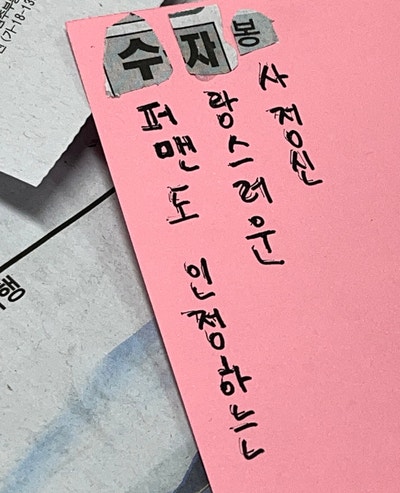 수퍼맨도 인정하는
자랑스러운
봉사정신
(가-18-13
행